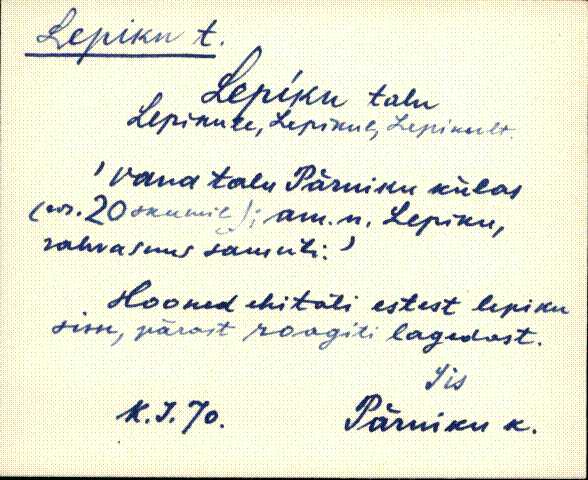 Lepiku t.
Lepiku talu
Lepikule, Lepikul, Lepikult.
'Vana talu Pärniku külas
20 am. n. Lepiku,
rahvasuus samuti.'
Hooned ehitati estest lepiku
sisse, pärast roogiti lagedast.
Iis
K.I.70. Pärniku k.